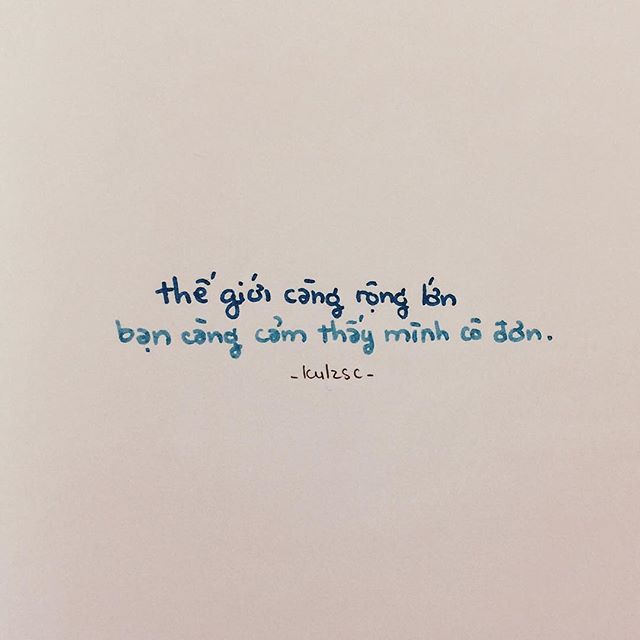 thế giới càng rộng lớn
bạn càng cảm thấy mình cô đơn.
-kulzsc-